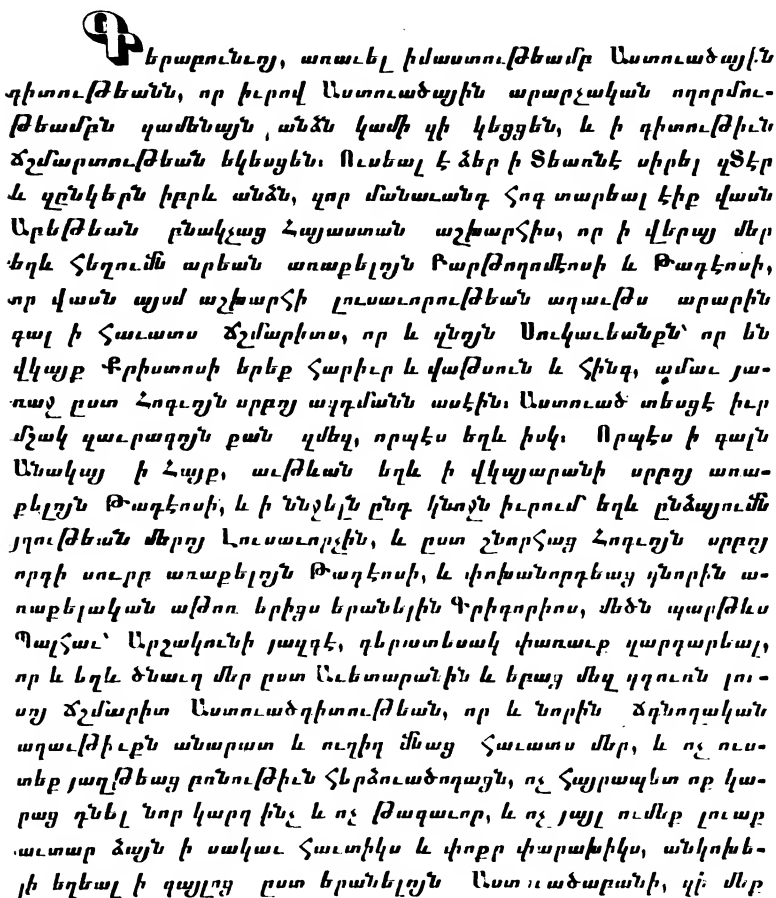 Գերաբունւոյ, առաւել իմաստութեամբ Աստուածային
գիտութեանն, որ իւրով Աստուածային արարչական ողորմու-
թեամբն զամենայն անձն կամի զի կեցցեն, և ի գիտութիւն
ճշմարտութեան եկեսցեն։ Ուսեալ է ձեր ի Տեառնէ սիրել զՏէր
և զընկերն իբրև անձն, զոր մանաւանդ հոգ տարեալ էիք վասն
Արեթեան բնակչաց Հայաստան աշխարհիս, որ ի վերայ մեր
եղև հեղումն արեան առաքելոյն Բարթողոմէոսի և Թադէոսի,
որ վասն այսմ աշխարհի լուսաւորութեան աղաւթս արարին
գալ ի հաւատս ճշմարիտս, որ և զնոյն Սուկաւեանքն՝ որ են
վկայք Քրիստոսի երեք հարիւր և վաթսուն և հինգ, ամաւ յա-
ռաջ ըստ Հոգւոյն սրբոյ ազդմանն ասէին։ Աստուած տեսցէ իւր
մշակ զաւրագոյն քան զմեզ, որպէս եղև իսկ։ Որպէս ի գալն
Անակայ ի Հայք, աւթևան եղև ի վկայարանի սրբոյ առա-
քելոյն Թադէոսի, և ի ննջելն ընդ կնոջն իւրում եղև ընձայումն
յղութեան մերոյ Լուսաւորչին, և ըստ շնորհաց Հոգւոյն սրբոյ
որդի սուրբ առաքելոյն Թադէոսի, և փոխանորդեաց զնորին ա-
ռաքելական աթոռ երիցս երանելին Գրիգորիոս, մեծն պարթևս
Պալհաւ՝ Արշակունի յազգէ, գերատեսակ փառաւք զարդարեալ,
որ և եղև ծնաւղ մեր ըստ Աւետարանին և եբաց մեզ զդուռն լու-
սոյ ճշմարիտ Աստուածգիտութեան, որ և նորին ճգնողական
աղաւթիւքն անարատ և ուղիղ մնաց հաւատս մեր, և ոչ ուս-
տեք յաղթեաց բռնութիւն հերձուածողացն, ոչ հայրապետ ոք կա-
րաց դնել նոր կարգ ինչ և ոչ թագաւոր, և ոչ յայլ ումեք լուաք
աւտար ձայն ի սակաւ հաւտիկս և փոքր փարախիկս, անկոխե-
լի եղեալ ի գայլոց ըստ երանելոյն Աստուածաբանի, զի մեք